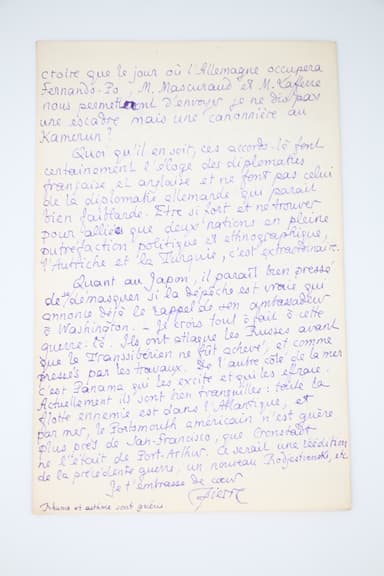 croire que le jour où l'Allemagne occupera
Fernando-Po, M. Mascuraud et M. Kaferre
nous permettront d'envoyer, je ne dis pas
une escadre mais une canonnière au
Kamerun?
Quoi qu'il en soit, ces accords-là font
certainement l'éloge des diplomaties
française et anglaise et ne font pas celui
de la diplomatie allemande qui paraît
bien faiblarde. Etre si fort et ne trouver
pour alliés que deux nations en pleine
putréfaction politique et ethnographique,
l'Autriche et la Turquie, c'est extraordinaire.
Quant au Japon, il paraît bien pressé
de se démasquer si la dépêche est vraie qui
annonce déjà le rappel de son ambassadeur
à Washington. – Je crois tout à fait à cette
guerre-là. Ils ont attaqué les Russes avant
que le Transsibérien ne fût achevé, et comme
pressés par les travaux. De l'autre côté de la mer
c'est Panama qui les excite et qui les
Actuellement ils sont bien tranquilles: toute la
flotte ennemie est dans l'Atlantique, et
par mer, le Portsmouth américain n'est guère
plus près de San-Francisco, que Cronstadt
ne l'était de Port-Arthur. Ce serait une réédition
de la précédente guerre, un nouveau Rodjestvenski, etc.
Je t'embrasse de cœur
Pierre
Rhume et asthme sont guéris